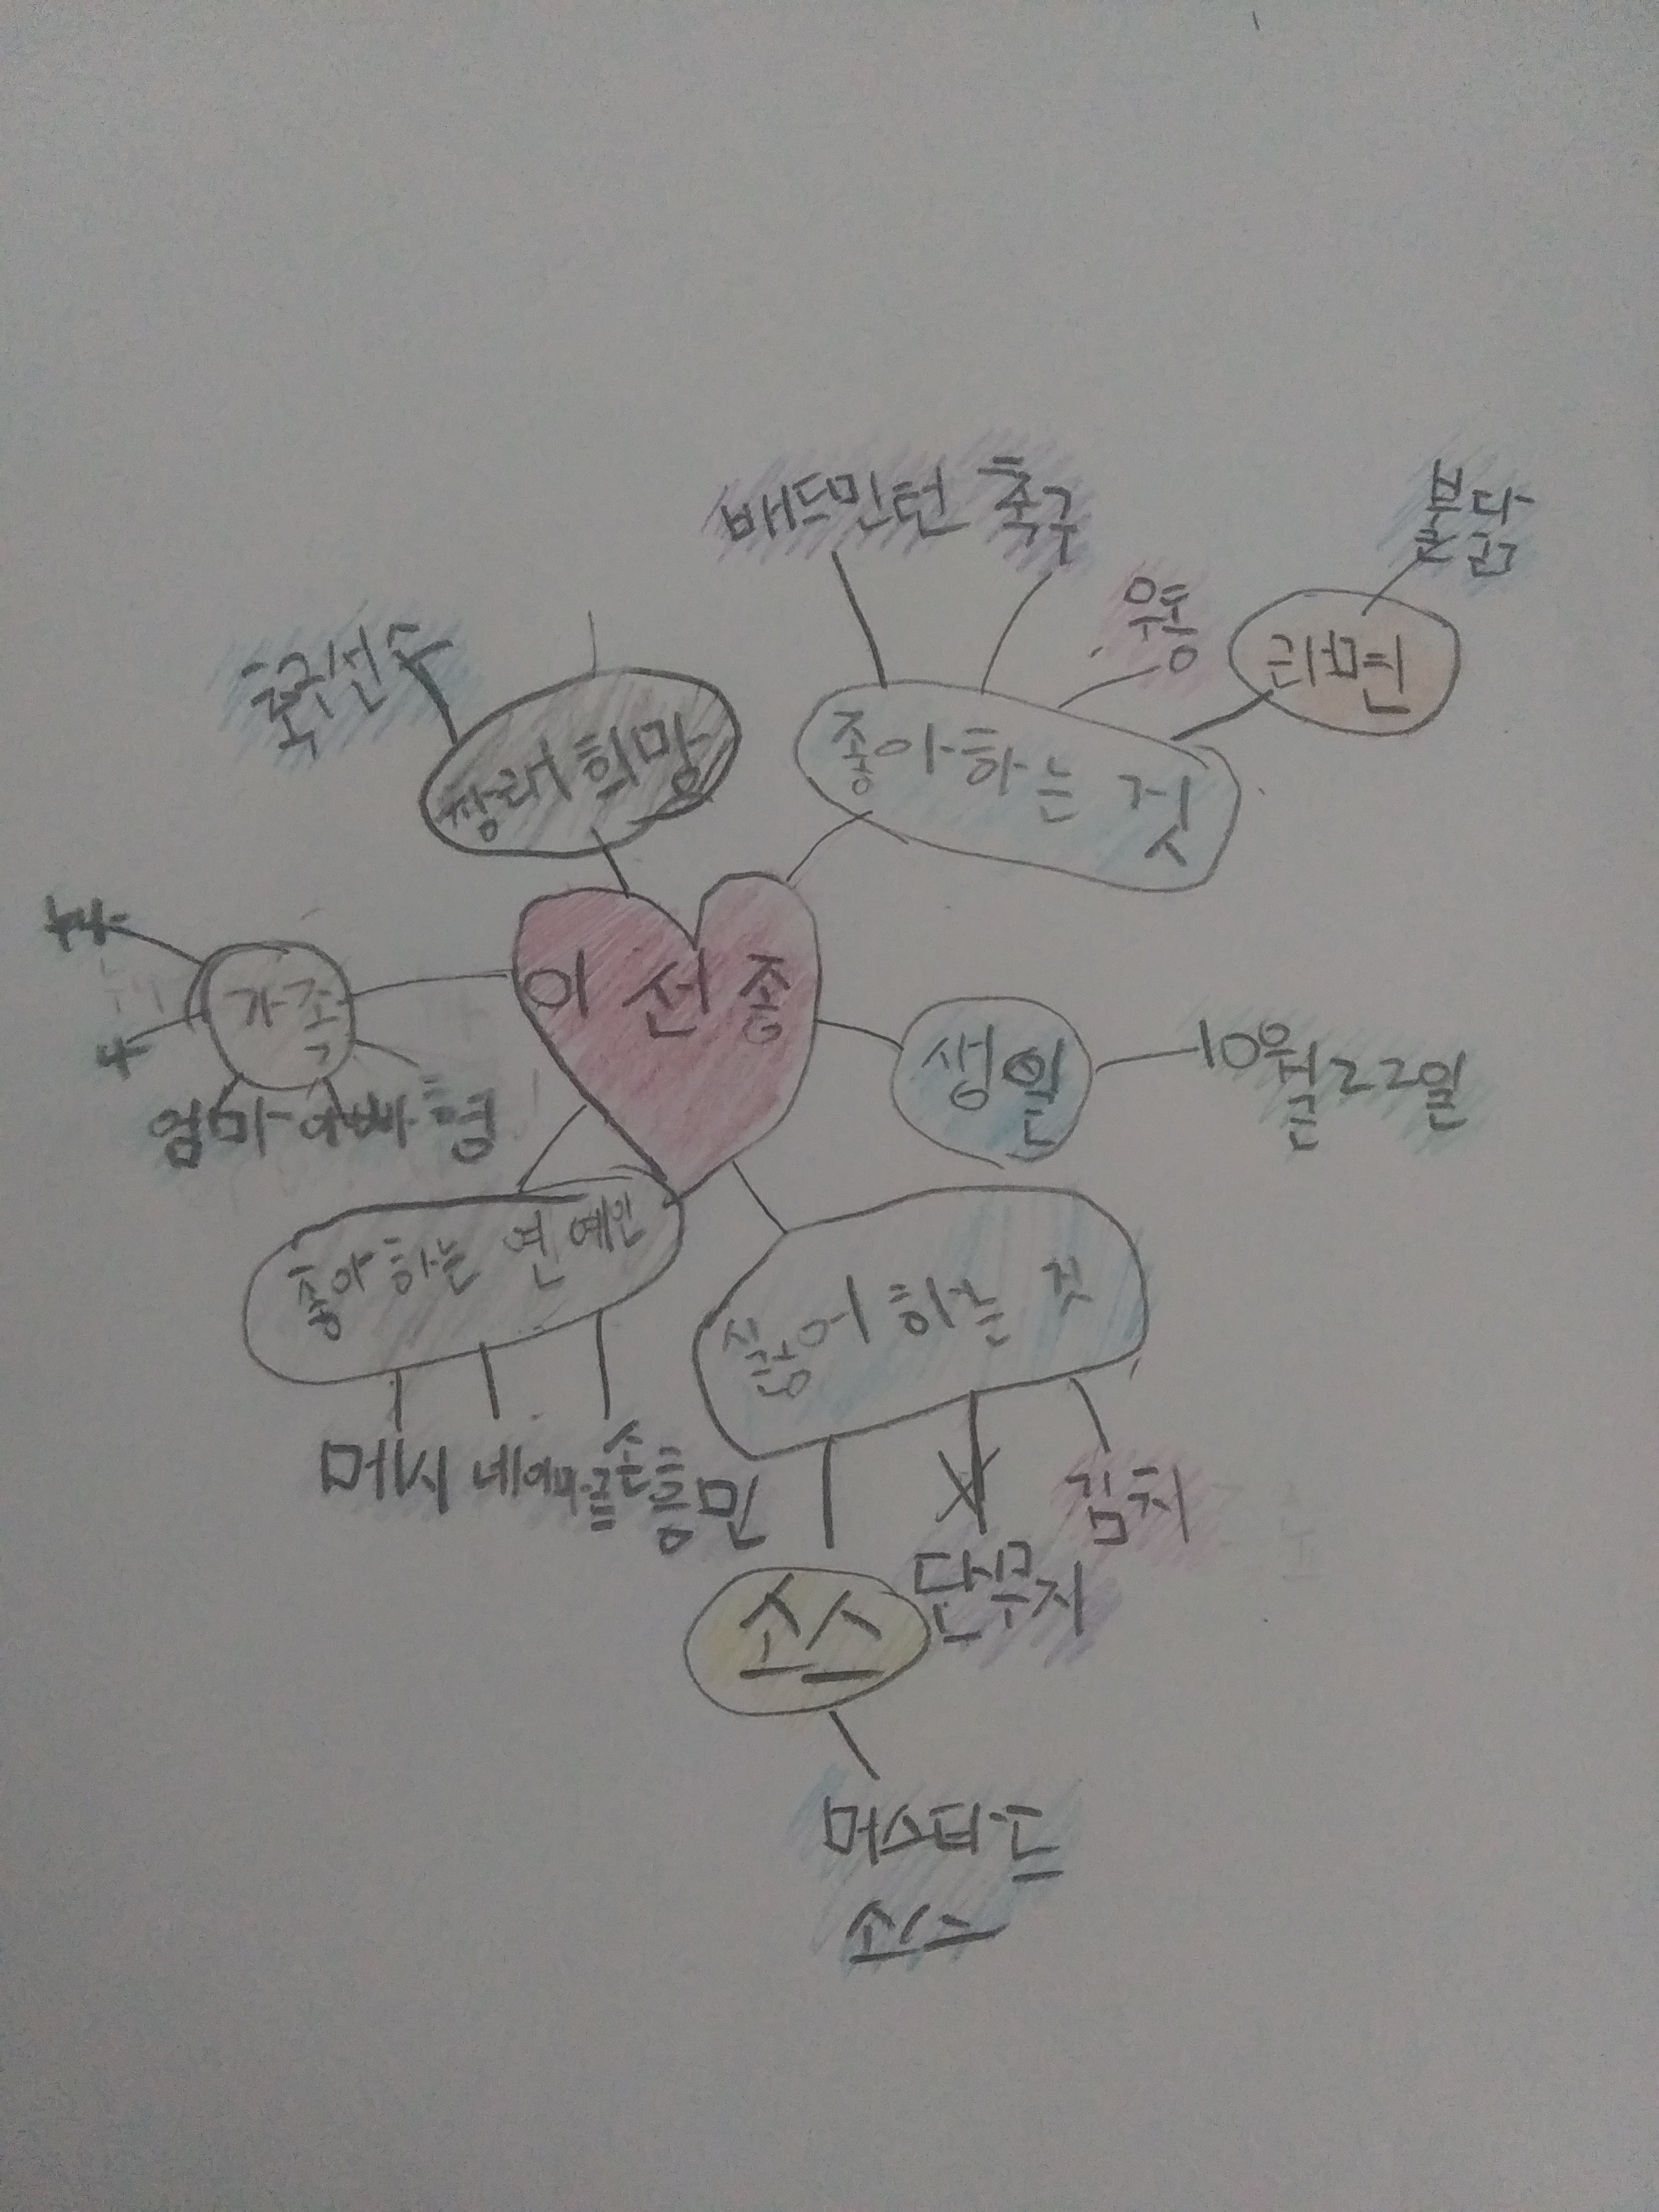 배드민턴 축구
불닭
운동
라면
축구선수
장래희망
좋아하는 것
이선종
가족
나
생일
10월22일
엄마 아빠 형
좋아하는 연예인
싫어하는 것
메시 네이마르 손흥민
김치
단무지
소스
머스타드
소스